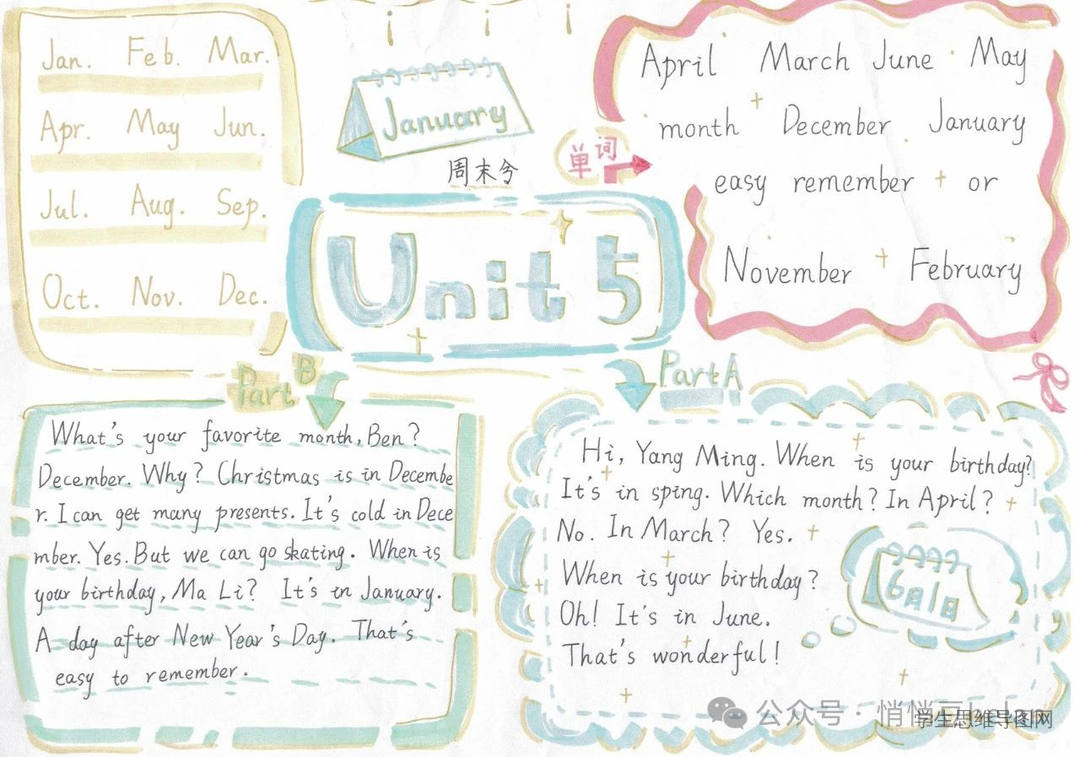 Jan. Feb. Mar.
Apr. May Jun.
Jul. Aug. Sep.
Oct. Nov. Dec.
January
周末兮
单词
April March June May
month December January
easy remember or
November February
Unit 5
Part B
What's your favorite month, Ben?
December. Why? Christmas is in Decembe
r. I can get many presents. It's cold in Dece
mber. Yes. But we can go skating. When is
your birthday, Ma Li? It's in January.
A day after New Year's Day. That's
easy to remember.
Part A
Hi, Yang Ming. When is your birthday?
It's in sping. Which month? In April?
No. In March? Yes.
When is your birthday?
Oh! It's in June.
That's wonderful!
6月1日
公众号 · 悄悄
学生思维导图网